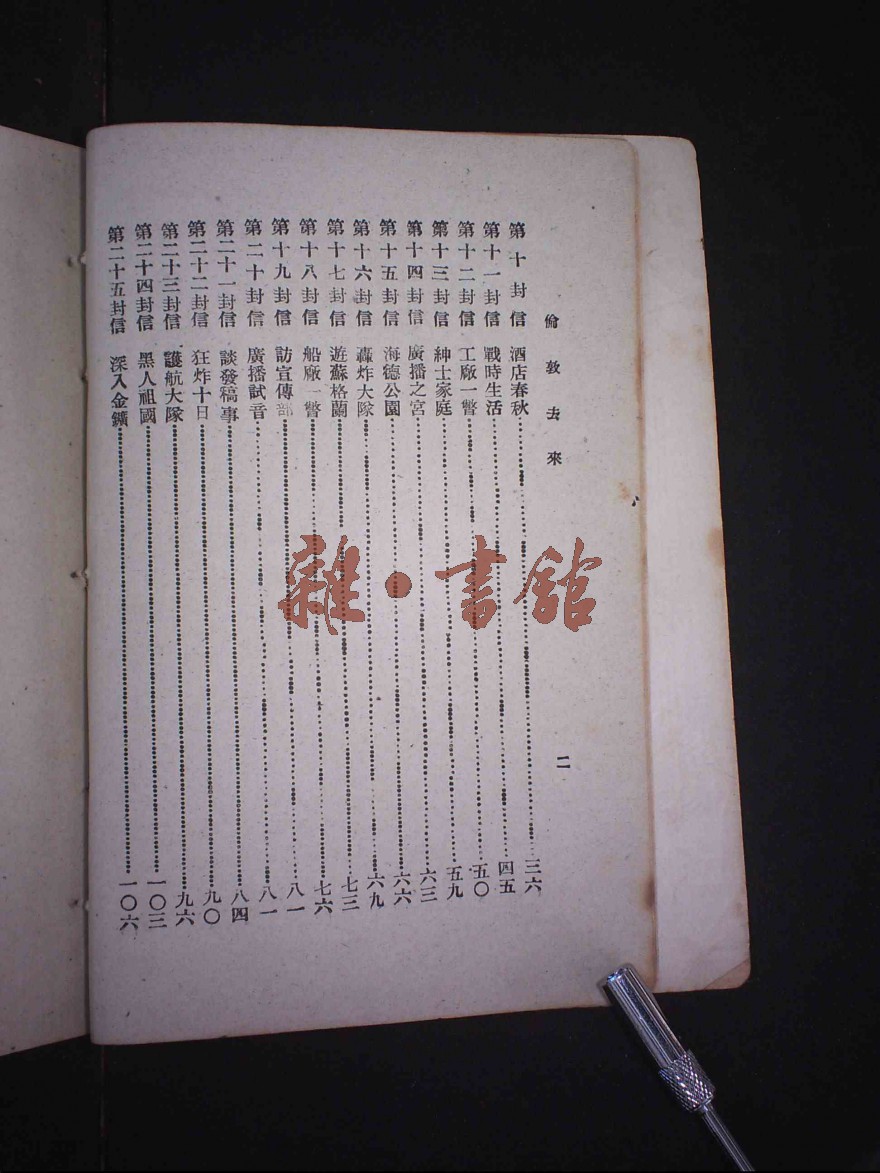 倫敦去來
二
第十封信 酒店春秋 三六
第十一封信 戰時生活 四五
第十二封信 工廠一瞥 五〇
第十三封信 紳士家庭 五九
第十四封信 廣播之宮 六三
第十五封信 海德公園 六六
第十六封信 轟炸大隊 六九
第十七封信 遊蘇格蘭 七三
第十八封信 船廠一瞥 七六
第十九封信 訪宣傳部 八一
第二十封信 廣播試音 八一
第二十一封信 談發稿事 八四
第二十二封信 狂炸十日 九〇
第二十三封信 護航大隊 九六
第二十四封信 黑人祖國 一〇三
第二十五封信 深入金鑛 一〇六
雜·書館